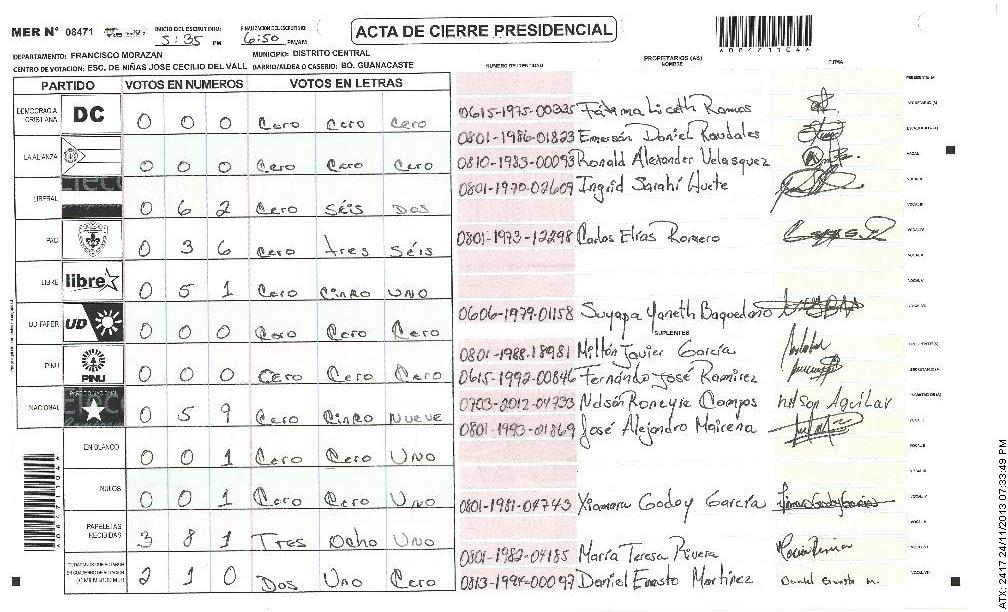 MER N° 08471
INICIO DEL ESCRUTINIO: 5:35 PM
FINALIZACION DEL ESCRUTINIO: 6:50 PM/AM
ACTA DE CIERRE PRESIDENCIAL
DEPARTAMENTO: FRANCISCO MORAZAN MUNICIPIO: DISTRITO CENTRAL
CENTRO DE VOTACION: ESC. DE NIÑAS JOSE CECILIO DEL VALL BARRIO/ALDEA O CASERIO: BO. GUANACASTE
NUMERO DE IDENTIDAD PROPIETARIOS (AS) NOMBRE FIRMA
PARTIDO VOTOS EN NUMEROS VOTOS EN LETRAS
DEMOCRACIA CRISTIANA DC 0 0 0 Cero Cero Cero
LA ALIANZA 0 0 0 Cero Cero Cero
LIBERAL 0 6 2 Cero Séis Dos
PAC 0 3 6 Cero tres Séis
LIBRE libre 0 5 1 Cero Cinco uno
UD-FAPER UD 0 0 0 Cero Cero Cero
PINU PINU 0 0 0 Cero Cero Cero
NACIONAL 0 5 9 Cero Cinco Nueve
EN BLANCO 0 0 1 Cero Cero Uno
NULOS 0 0 1 Cero Cero Uno
PAPELETAS RECIBIDAS 3 8 1 Tres Ocho Uno
2 1 0 Dos Uno Cero
0615-1975-00335 Fátima Liceth Ramos
0801-1986-01823 Emerson Daniel Raudales
0810-1983-00093 Ronald Alexander Velasquez
0801-1970-02609 Ingrid Sarahí Huete
0801-1973-12298 Carlos Elías Romero
0606-1979-01158 Suyapa Yaneth Baquedano
SUPLENTES
0801-1988-18981 Miltón Javier García
0615-1992-00846 Fernándo José Ramirez
0703-2012-04733 Nelsón Roneyre Campos nelson Aguilar
0801-1993-01869 José Alejandro Mairena
0801-1981-04743 Xiomara Godoy García
0801-1982-04185 María Teresa Rivera
0813-1994-00097 Daniel Ernesto Martinez Daniel Ernesto M.
ATX: 2417 24/11/2013 07:33:49 PM